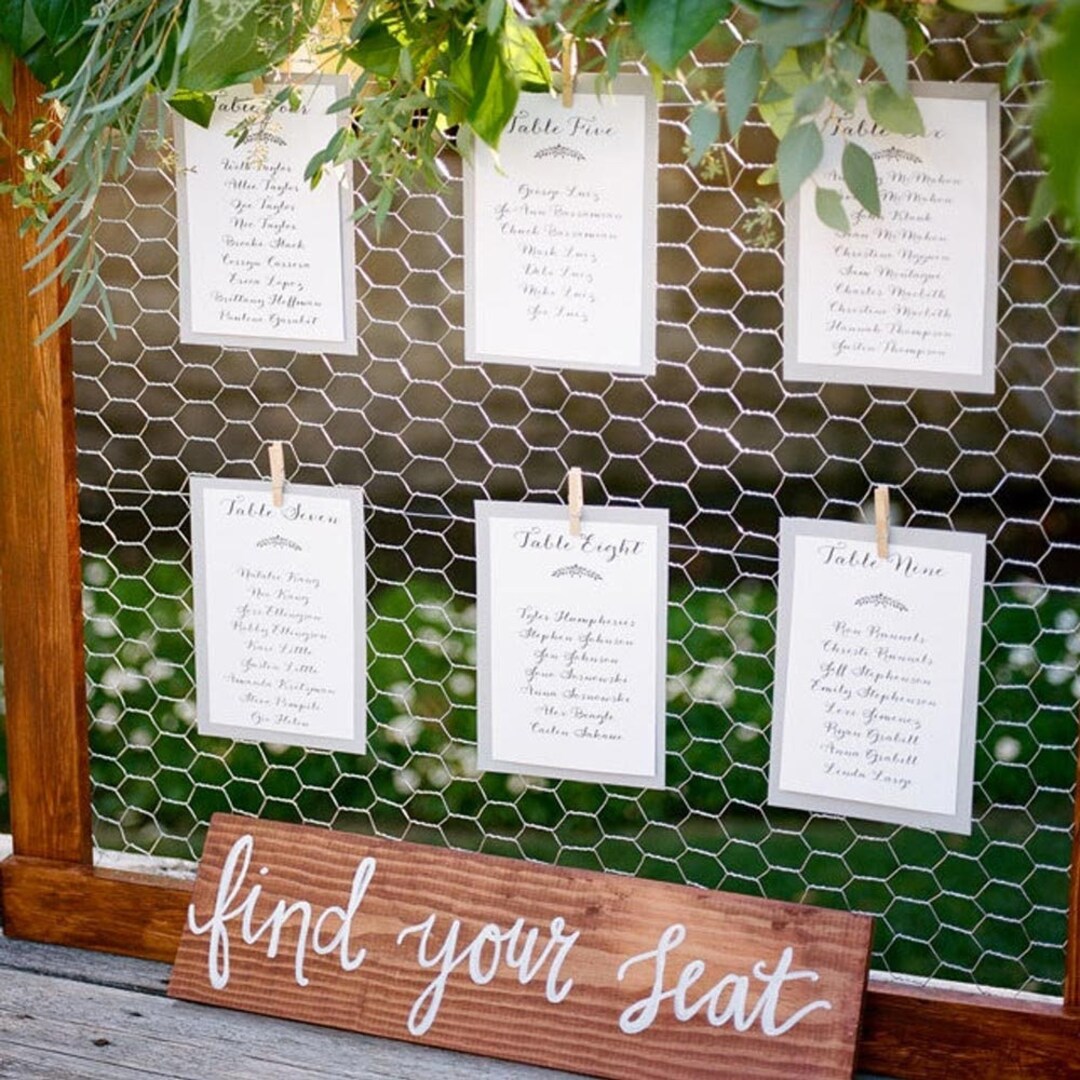 Table Four
Taylor
Allie Taylor
Joe Taylor
Nic Taylor
Brooke Stack
Erica Lopez
Brittany Hoffman
Pauline
Table Five
George Luiz
Jo-Ann
Chuck
Mark Luiz
Dale Luiz
Mike Luiz
Joe Luiz
Table Six
McMahon
McMahon
John Klunk
McMahon
Christine Nguyen
Sam Montague
Charles Macbeth
Christine Macbeth
Hannah Thompson
Justin Thompson
Table Seven
Natalie Kang
Noe Kang
Jess Ellingson
Bobby Ellingson
Kari Little
Justin Little
Amanda Kritzman
Steve Pompili
Gio Helou
Table Eight
Tyler Humpheries
Stephen Johnson
Jen Johnson
Jane Sosnowski
Anna Sosnowski
Alex Beagle
Caitlin Sakane
Table Nine
Ron Runnels
Christi Runnels
Jeff Stephenson
Emily Stephenson
Lori Simenez
Ryan Grabell
Anna Grabell
Linda Large
find your seat